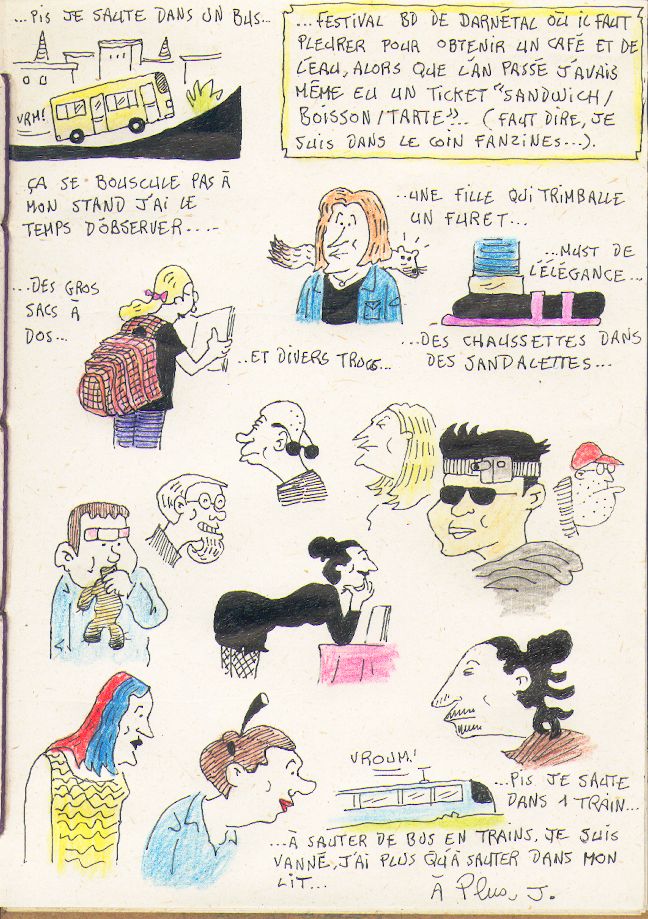 ...PIS JE SAUTE DANS UN BUS...
...FESTIVAL BD DE DARNÉTAL OÙ IL FAUT
PLEURER POUR OBTENIR UN CAFÉ ET DE
L'EAU, ALORS QUE L'AN PASSÉ J'AVAIS
MÊME EU UN TICKET "SANDWICH/
BOISSON/TARTE"... (FAUT DIRE, JE
SUIS DANS LE COIN FANZINES...).
VRM!
ÇA SE BOUSCULE PAS À
MON STAND J'AI LE
TEMPS D'OBSERVER...
...UNE FILLE QUI TRIMBALLE
UN FURET...
...MUST DE
L'ÉLÉGANCE...
...DES GROS
SACS À
DOS...
...DES CHAUSSETTES DANS
DES SANDALETTES...
...ET DIVERS TROGS...
VROUM!
...PIS JE SAUTE
DANS 1 TRAIN...
...À SAUTER DE BUS EN TRAINS, JE SUIS
VANNÉ, J'AI PLUS QU'À SAUTER DANS MON
LIT...
À Plus, J.